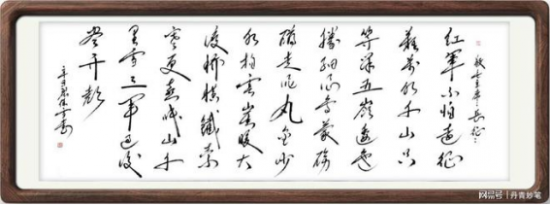 红军不怕远征
难万水千山只
等闲五岭逶迤
腾细浪乌蒙磅
礴走泥丸金沙
水拍云崖暖大
渡桥横铁索
寒更喜岷山千
里雪三军过后
尽开颜
网易号 | 丹青妙笔